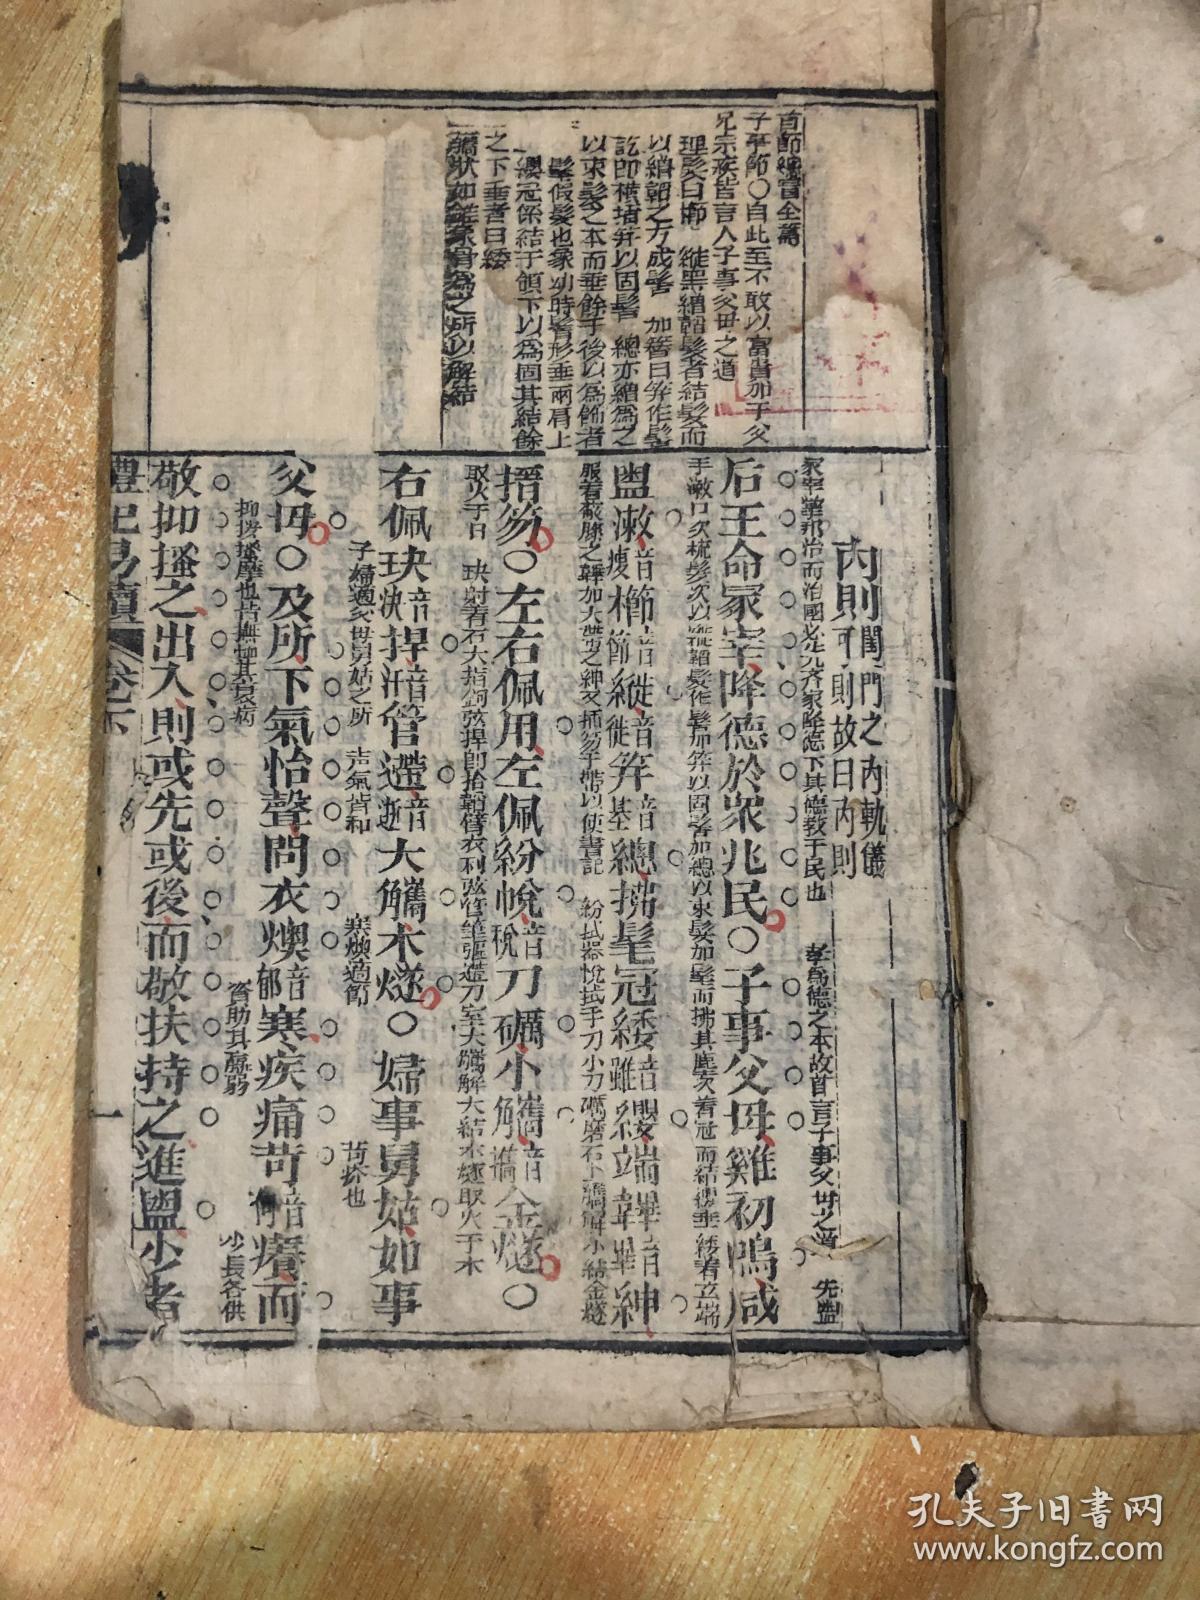 首節總冒全篇
子事節○自此至不敢以富貴加于父
兄宗族皆言人子事父母之道
理髮曰櫛 縰黑繒韜髮者結髮而
以繒韜之方成髻 加簪曰笄作髻
訖即橫揷笄以固髻 總亦繒為之
以束髮之本而垂餘于後以為飾者
髦假髮也象幼時髫形垂兩肩上
纓冠係結于頷下以為固其結餘
之下垂者曰緌
觿狀如錐象骨為之所以解結
內則閨門之內軌儀
可則故曰內則
冢宰掌邦治而治國必先齊家降德下其德敎于民也 孝為德之本故首言子事父母之道 先盥
后王命冢宰降德於衆兆民○子事父母雞初鳴咸
手漱口次梳髮次以縰韜髮作髻加笄以固髻加總以束髮加髦而拂其塵次著冠而結纓垂緌著玄端
盥漱音瘦櫛音節縰音徙笄音基總拂髦冠緌音雖纓端韠音畢紳
服著蔽膝之韠加大帶之紳又插笏于帶以便書記 紛拭器帨拭手刀小刀礪磨石小觿解小結金燧
搢笏○左右佩用左佩紛帨音稅刀礪小觿音雟金燧○
取火于日 玦射者右大指鉤弦捍即拾韜臂衣利弦管筆彄遰刀室大觿解大結木燧取火于木
右佩玦音決捍音汗管遰音逝大觿木燧○婦事舅姑如事
子婦適父母舅姑之所 声氣皆和 寒燠適節 苛疥也
父母○及所下氣怡聲問衣燠音郁寒疾痛苛音何癢而
抑按搔摩也皆撫恤其衰病 資助其羸弱 少長各供
敬抑搔之出入則或先或後而敬扶持之進盥少者
禮記易讀 卷之下 一
孔夫子旧書网
www.kongfz.com